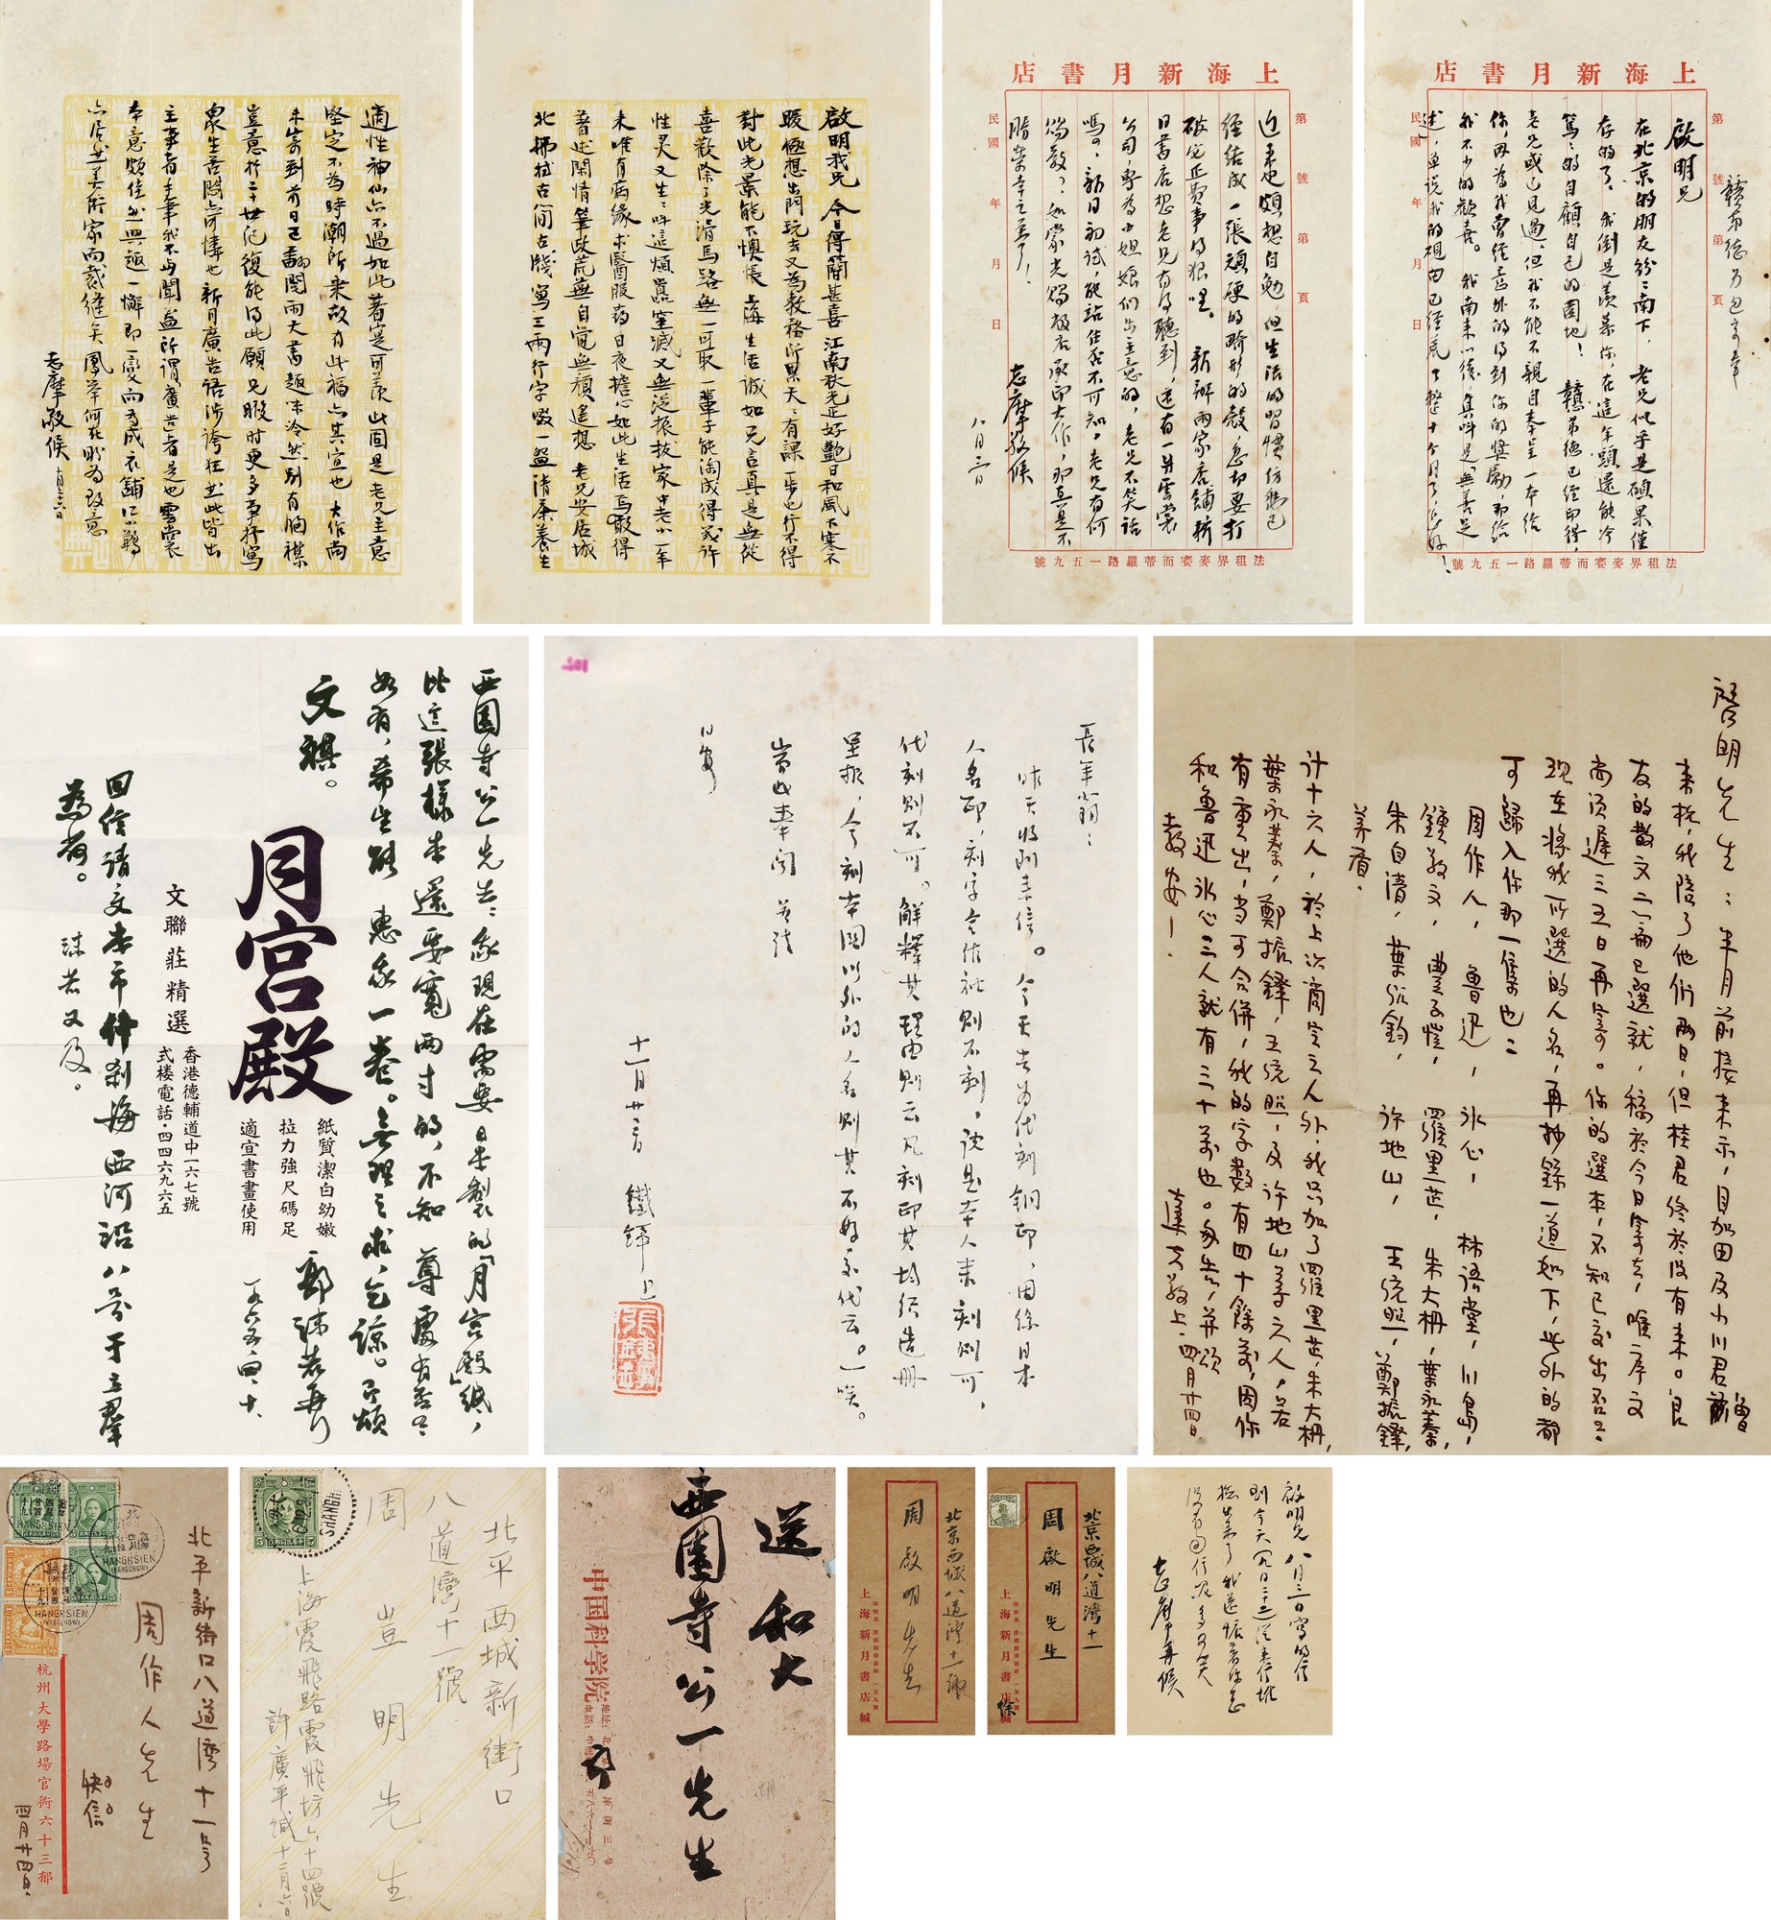 適性神仙亦不過如此著實可羨此固是老兄主意
堅定不為時潮所乘故有此福亦其宜也大作尚
未寄到前日已翻閱兩大書趣味泠然別有胸襟
豈意於二十世紀復能得此願兄暇時更多事抒寫
眾生苦悶亦可憐也新月廣告語涉誇狂
主事者手筆我不與聞
本意頗佳
志摩敬候
啟明我兄今日得蘭甚喜江南秋光正好艷日和風不寒不
暖極想出門玩去又為教務所累天天有課一步也行不得
對此光景能不懊悵上海生活誠如兄言真是無從
喜歡除了光滑馬路無一可取一輩子能淘成得幾許
性靈又生生叫這煩囂窒滅又無從振拔家中老小一年
來唯有病緣求醫服藥日夜擔心如此生活焉敢得
著述閒情筆政荒蕪自覺無顏遙想老兄安居城
北拂拭古簡古牋寫三兩行字啜一盌清茶養生
上海新月書店
第 號 第 頁
近來也頗想自勉但生活的習慣彷彿已
經結成一張頑硬的畸形的殼急切要打
破它正費事得狠哩。新辦兩家店舖新
月書店想老兄有得聽到,還有一爿雲裳
公司,專為小姐娘們出主意的,老兄不笑話
嗎?新月初試,能站住否不可知,老兄有何
賜教?如蒙光賜敝店承印大作,那真是不
勝榮幸之至了!
志摩敬候
八月三日
民國 年 月 日
法租界麥賽而蒂羅路一五九號
上海新月書店
第 號 第 頁
啟明兄
在北京的朋友紛紛南下,老兄似乎是碩果僅
存的了。我倒是羨慕你,在這年頭還能冷
篤篤的自顧自己的園地!
老兄或已見過,但我不能不親自奉呈一本給
你,因為我曾經意外的得到你的獎勵,那給
我不少的歡喜。我南來以後,真叫是無善足
述,單說我的硯田已經荒了整十個月了,怎好!
民國 年 月 日
法租界麥賽而蒂羅路一五九號
西園寺公一先生:我現在需要手製的「月宮殿」紙,
比這張樣本還要寬兩寸的,不知尊處有否?
如有,希望能惠我一卷。無理之求,乞諒。即頌
文祺。
郭沫若再行
一九六五、四、十、
回信請交本市什刹海西河沿八號于立羣
為荷。
沫若又及。
月宮殿
文聯莊精選
紙質潔白幼嫩
拉力強尺碼足
適宜書畫使用
香港德輔道中一六七號
式樓電話・四四六九六五
長年翁:
昨天收到來信。今天去為代刻銅印,因係日本
人名印,刻字合作社則不刻,說是本人來刻則可,
代刻則不可。解釋其理由則云凡刻印其均須造冊
呈報,今刻本國以外的人名則其不好交代云。一咲。
耑此奉聞 並請
日安
十一月廿二日 鐵錚上
啓明先生:半月前接來示,增田及小川君前
來杭,我陪了他們兩日,但桂君終於沒有來。良
友的散文二,兩已選就,稿於今日寄去,唯序文
尚須遲三五日再寄。你的選本,不知已交出否?
現在將我所選的人名,再抄錄一道如下,此外的都
可歸入你那一集也:
周作人, 魯迅, 冰心, 林語堂,川島,
鍾敬文, 豐子愷, 羅黑芷,朱大枬,葉永蓁,
朱自清,葉紹鈞, 許地山, 王統照,鄭振鐸,
茅盾.
計十六人,於上次商定之人外,我只加了羅黑芷,朱大枬,
葉永蓁,鄭振鐸,王統照,及許地山等之人,若
有重出,當可合併,我的字數有四十餘萬,因你
和魯迅冰心三人就有三十萬也。匆告,并頌
教安!
達夫敬上.四月廿四日
北平新街口八道灣十一號
周作人先生
快信
四月廿四日.
杭州大學路場官衖六十三郁
HANGHSIEN
北平西城新街口
八道灣十一號
周豈明先生
上海霞飛路霞飛坊六十四號
許廣平緘十二月六日
送和大
西園寺公一先生
中国科学院
郭
北京西城八道灣十一號
周啟明先生
上海新月書店緘
北京西城八道灣十一
周啟明先生
上海新月書店緘
徐
啟明兄八月三日寫的信
志摩再候